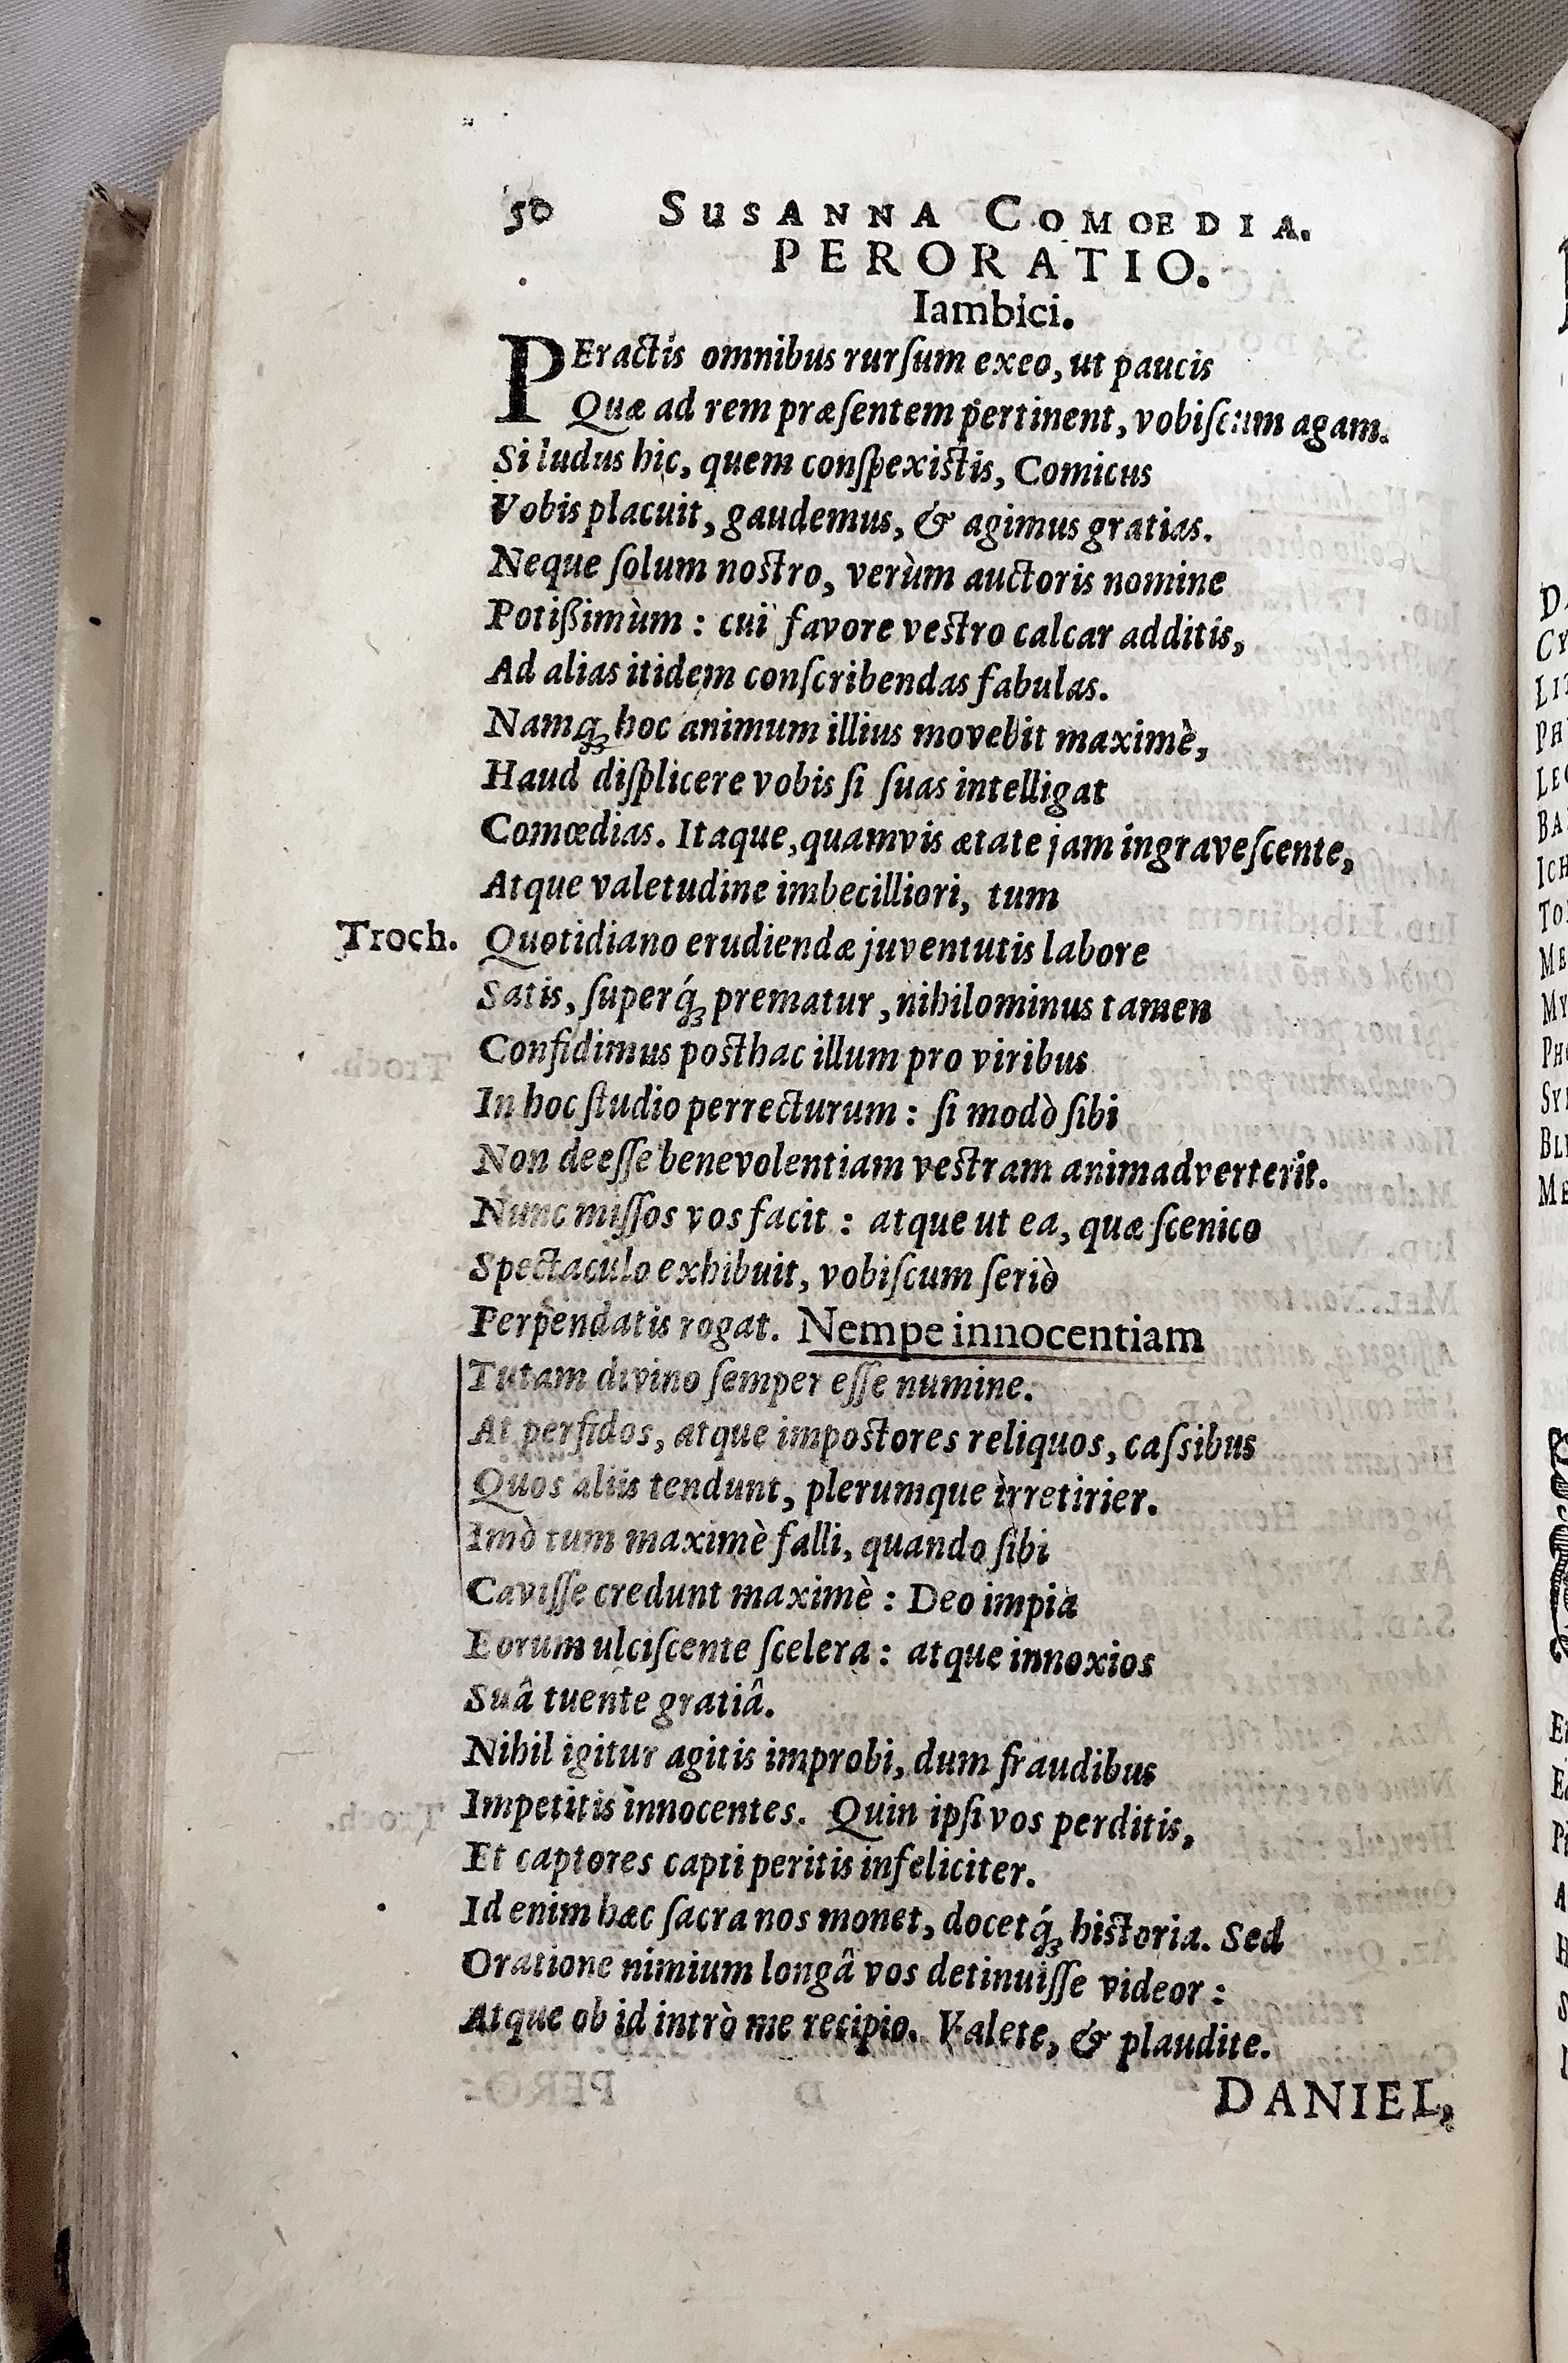 50 SUSANNA COMOEDIA.
PERORATIO.
Iambici.
PEractis omnibus rursum exeo, ut paucis
Quæ ad rem præsentem pertinent, vobiscum agam.
Si ludus hic, quem conspexistis, Comicus
Vobis placuit, gaudemus, & agimus gratias.
Neque solum nostro, verùm auctoris nomine
Potißimùm : cui favore vestro calcar additis,
Ad alias itidem conscribendas fabulas.
Namq́; hoc animum illius movebit maximè,
Haud displicere vobis si suas intelligat
Comœdias. Itaque, quamvis ætate jam ingravescente,
Atque valetudine imbecilliori, tum
Troch. Quotidiano erudiendæ juventutis labore
Satis, superq́; prematur, nihilominus tamen
Confidimus posthac illum pro viribus
In hoc studio perrecturum : si modò sibi
Non deesse benevolentiam vestram animadverterit.
Nunc missos vos facit : atque ut ea, quæ scenico
Spectaculo exhibuit, vobiscum seriò
Perpendatis rogat. Nempe innocentiam
Tutam divino semper esse numine.
At perfidos, atque impostores reliquos, cassibus
Quos aliis tendunt, plerumque irretirier.
Imò tum maximè falli, quando sibi
Cavisse credunt maximè : Deo impia
Eorum ulciscente scelera : atque innoxios
Suâ tuente gratiâ.
Nihil igitur agitis improbi, dum fraudibus
Impetitis innocentes. Quin ipsi vos perditis,
Et captores capti peritis infeliciter.
Id enim hæc sacra nos monet, docetq́; historia. Sed
Oratione nimium longâ vos detinuisse videor :
Atque ob id intrò me recipio. Valete, & plaudite.
DANIEL,